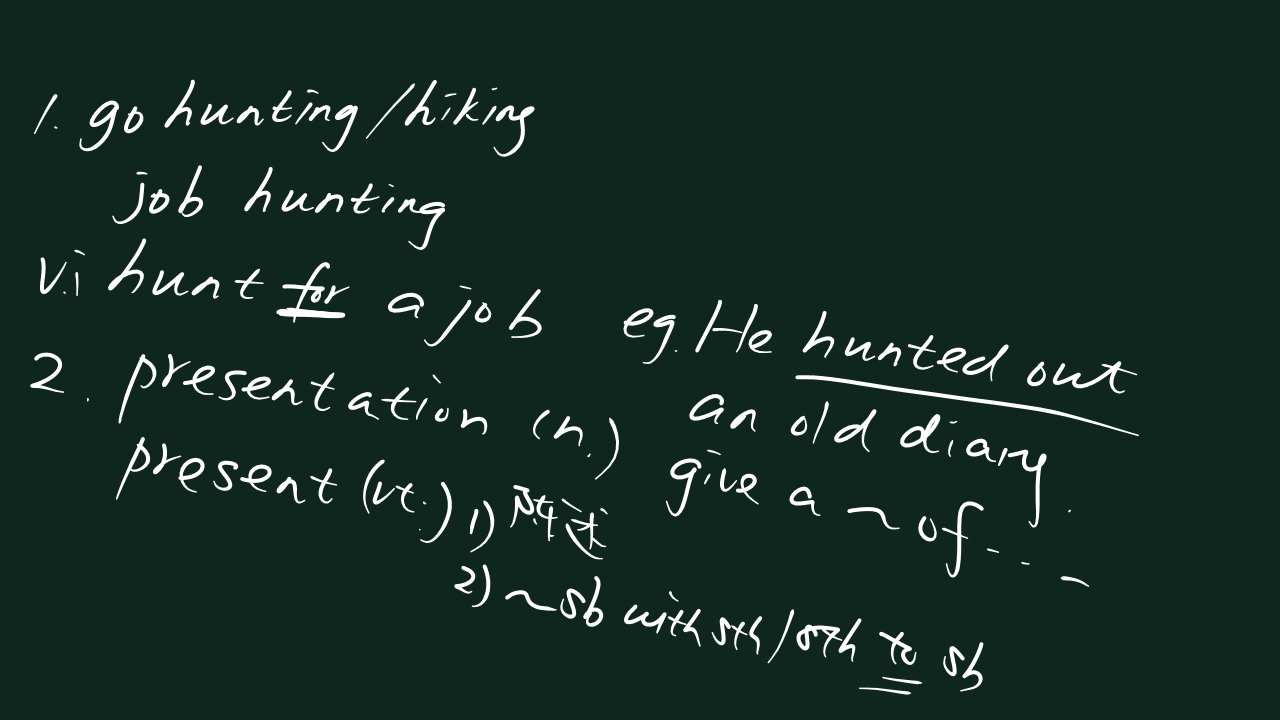 1. go hunting/hiking
job hunting
v.i hunt for a job
eg. He hunted out
an old diary.
2. presentation (n.)
give a ~ of...
present (vt.) 1) 陈述
2) ~sb with sth/sth to sb